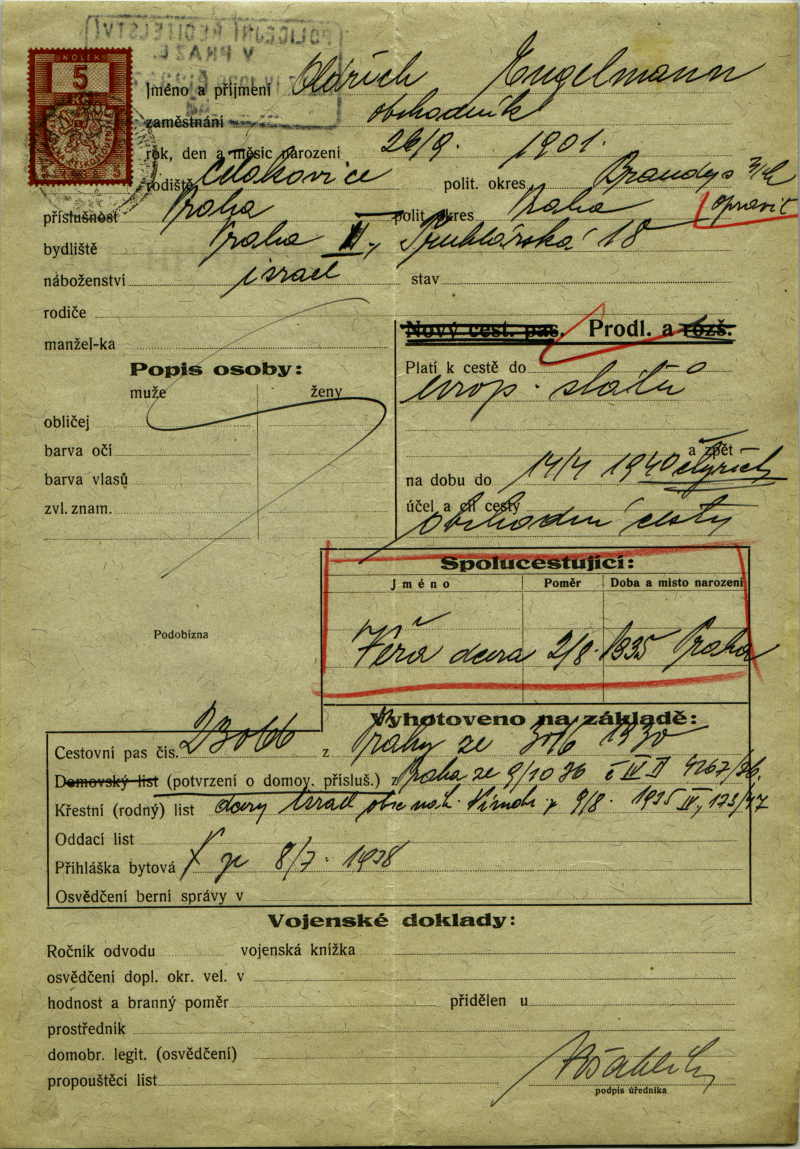 KOLEK
5
POLICEJNÍ ŘEDITELSTVÍ
V PRAZE
Jméno a příjmení Oldřich Engelmann
zaměstnání obchodník
rok, den a měsíc narození 26/9. 1901.
rodiště Čelákovice polit. okres Brandýs n/L
příslušnost Praha polit. okres Praha opravit
bydliště Praha II, Truhlářská 18
náboženství israel stav
rodiče
manžel-ka
Nový cest. pas. Prodl. a rozš.
Popis osoby:
muže ženy
Platí k cestě do
evrop. států
obličej
barva očí
a zpět
barva vlasů
na dobu do 14/4 1940 čtyřech
zvl. znam.
účel a cíl cesty
obchodní cesty
Spolucestující:
Jméno Poměr Doba a místo narození
Podobizna
Věra dcera 2/8. 1935 Praha
Vyhotoveno na základě:
Cestovní pas čís. 23066 z Prahy ze 30/6 1930
Domovský list (potvrzení o domov. přísluš.) z Praha ze 9/10 36 č IV 4267/36.
Křestní (rodný) list dcery israel. 9/8. 1935 IV, 123/47
Oddací list
Přihláška bytová 8/7. 1938
Osvědčení berní správy v
Vojenské doklady:
Ročník odvodu vojenská knížka
osvědčení dopl. okr. vel. v
hodnost a branný poměr přidělen u
prostředník
domobr. legit. (osvědčení)
propouštěcí list
podpis úředníka